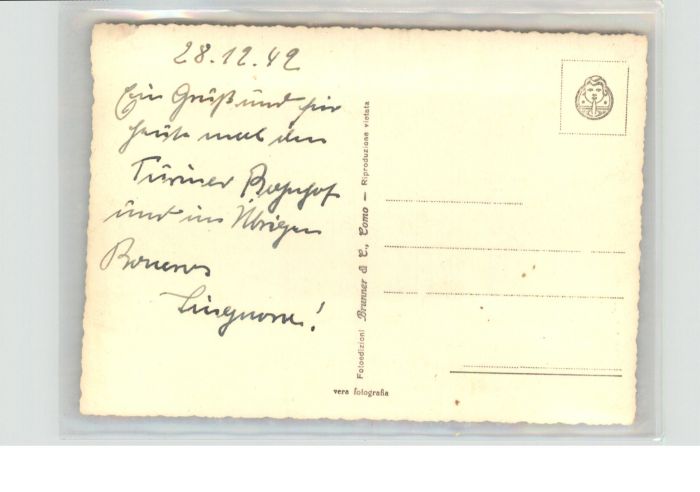 28.12.42
Ein Gruß und für
heute mal den
Turiner Bahnhof
und im Übrigen
Fotoedizioni Brunner & C., Como — Riproduzione vietata
vera fotografia